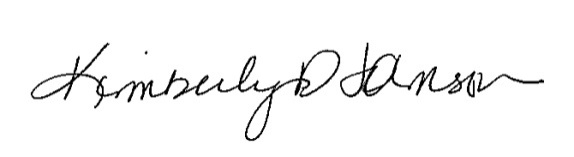 Kimberly D Hanson